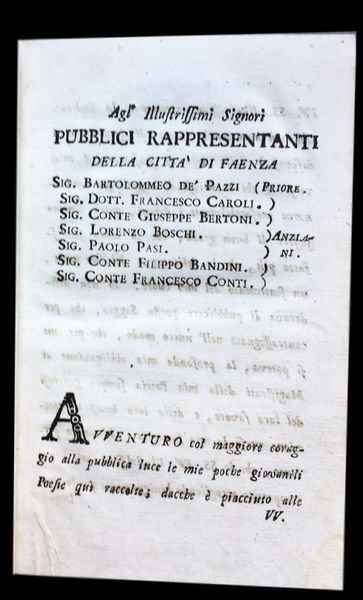 Agl' Illustrissimi Signori
PUBBLICI RAPPRESENTANTI
DELLA CITTA' DI FAENZA
SIG. BARTOLOMMEO DE' PAZZI (PRIORE.
SIG. DOTT. FRANCESCO CAROLI. )
SIG. CONTE GIUSEPPE BERTONI. )
SIG. LORENZO BOSCHI. )ANZIA-
SIG. PAOLO PASI. ) NI.
SIG. CONTE FILIPPO BANDINI. )
SIG. CONTE FRANCESCO CONTI. )
AVVENTURO col maggiore corag-
gio alla pubblica luce le mie poche giovanili
Poesie quì raccolte; dacche è piacciuto alle
VV.